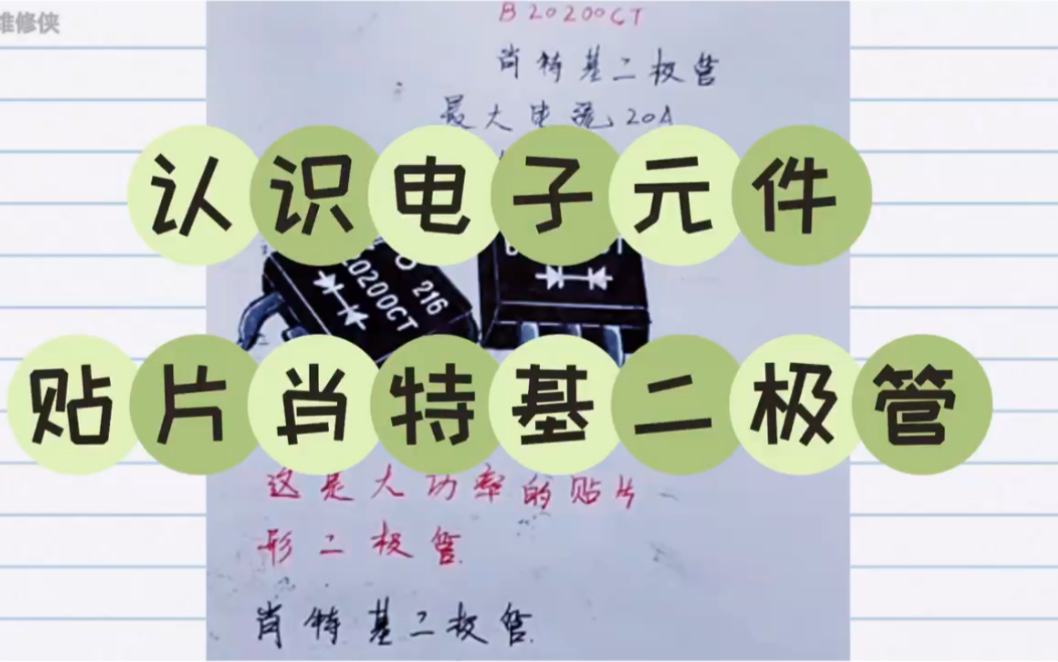 维修侠
B20200CT
肖特基二极管
最大电流20A
认识电子元件
216
20200CT
贴片肖特基二极管
这是大功率的贴片
形二极管
肖特基二极管